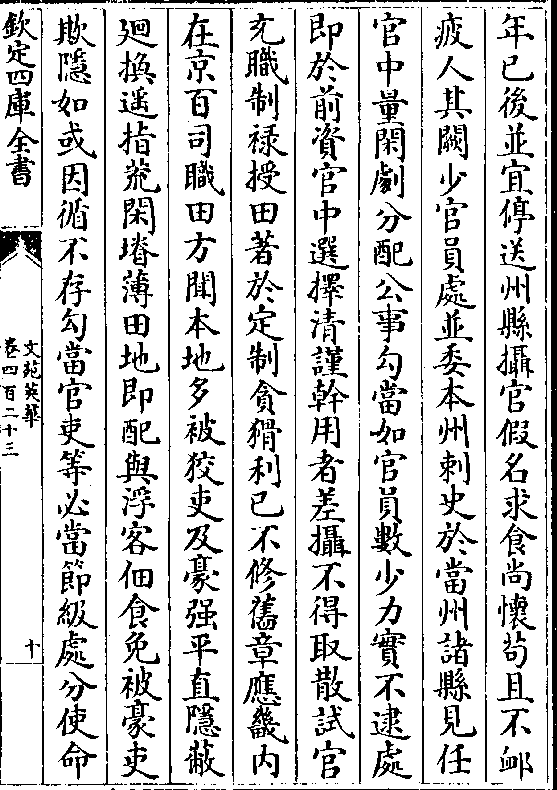 年已後並宜停送州縣攝官假名求食尚懷茍且不䘏
疲人其闕少官員處並委本州刺史於當州諸縣見任
官中量閑劇分配公事勾當如官員數少力實不逮處
即於前資官中選擇清謹幹用者差攝不得取散試官
充職制禄授田著於定制貪猾利已不修舊章應畿内
在京百司職田方聞本地多被狡吏及豪强平直隱蔽
廻換遥指荒閑塉薄田地即配與浮客佃食免被豪吏
欺隱如或因循不存勾當官吏等必當節級處分使命
欽定四庫全書
文苑英華
卷四百二十三
十